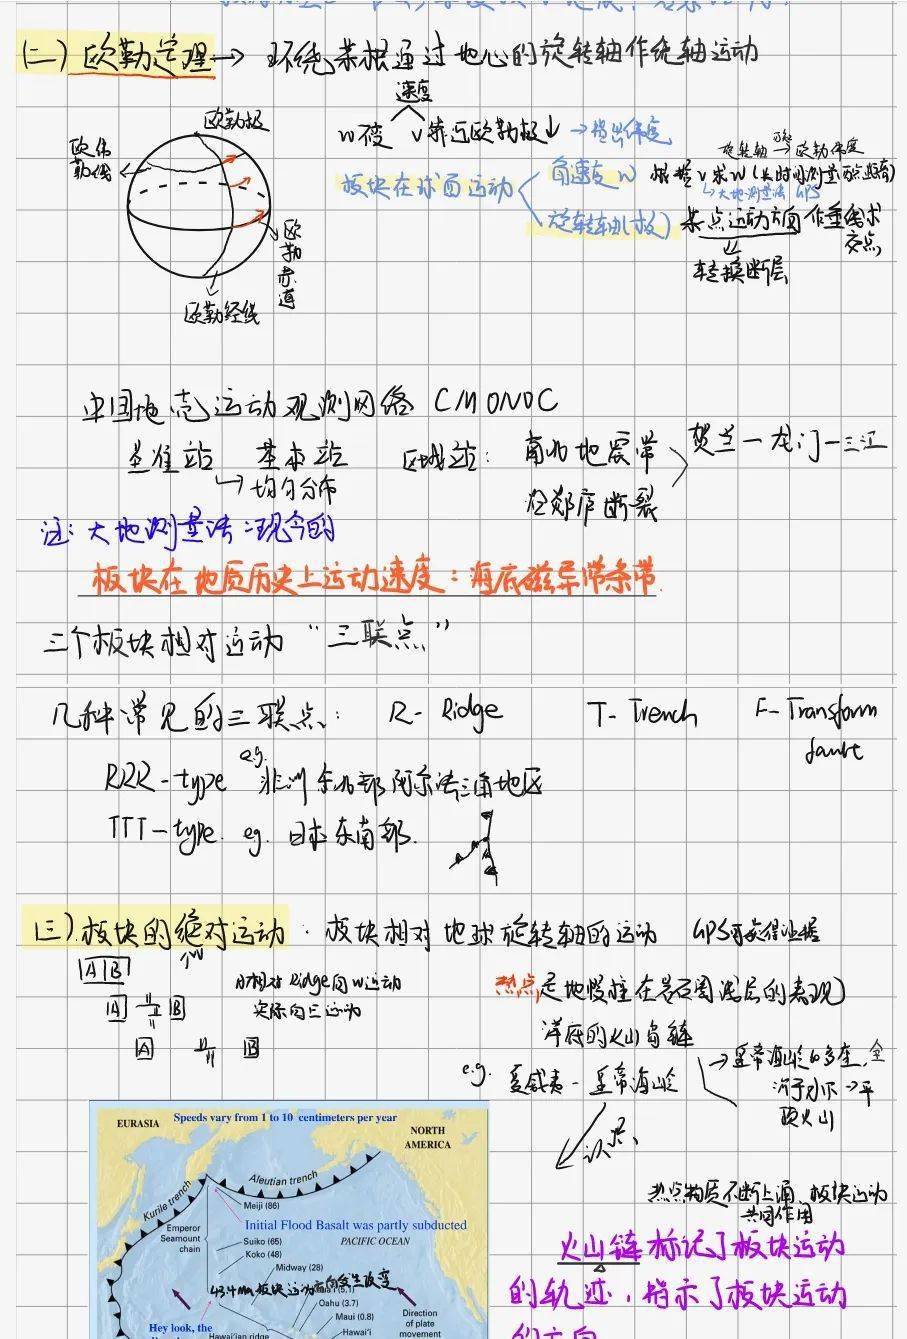 (二) 欧勒定理 → 环绕某根通过地心的旋转轴作绕轴运动
速度
w不变 v靠近欧勒极↓ →指出纬度
欧勒极
欧勒纬线
欧勒赤道
欧勒经线
板块在球面运动
角速度 w
旋转轴(极)
旋转轴 → 欧勒纬度
根据 v 求 w (长时间测量两点距离)
大地测量法 GPS
某点运动方向 作垂线求交点
转换断层
中国地壳运动观测网络 CMONOC
基准站 基本站 区域站: 南北地震带
贺兰一龙门一三江
均匀分布
郯庐断裂
注: 大地测量法:现今的
板块在地质历史上运动速度: 海底磁异常条带.
三个板块相对运动 “三联点”
几种常见的三联点: R- Ridge T- Trench F-Transform
fault
RRR-type e.g. 非洲东北部阿尔法三角地区
TTT-type. eg. 日本东南部.
(三) 板块的绝对运动: 板块相对地球旋转轴的运动 GPS可获得数据
A B
相对Ridge向w运动
A B
A B
热点 是地幔柱在岩石圈浅层的表现
洋底的火山岛链
e.g. 夏威夷-皇帝海岭
热点物质不断上涌, 板块运动
共同作用
火山链标记了板块运动
的轨迹, 指示了板块运动
的方向
EURASIA
Speeds vary from 1 to 10 centimeters per year
NORTH
AMERICA
Kurile trench
Aleutian trench
Meiji (86)
Emperor
Seamount
chain
Initial Flood Basalt was partly subducted
Suiko (65)
PACIFIC OCEAN
Koko (48)
Midway (28)
43.4Ma板块运动方向发生改变
(5.1)
Oahu (3.7)
Maui (0.8)
Direction
of plate
movement
Hey look, the
Hawai'ian ridge
Hawai'i